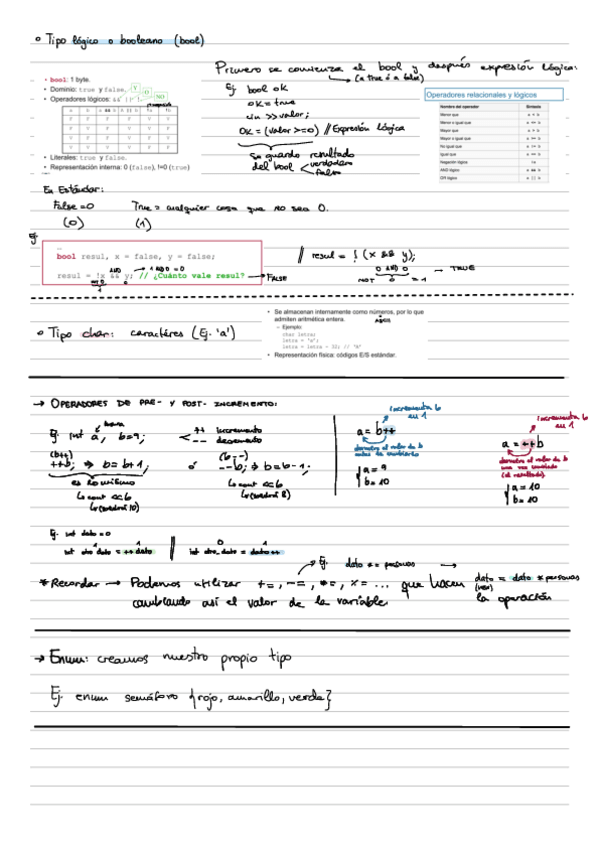 ° Tipo lógico o booleano (bool)
Primero se comienza el bool y después expresión lógica:
(a true ó a false)
• bool: 1 byte.
• Dominio: true y false.
• Operadores lógicos: && || !
Y O NO
a b a && b a || b !a
• Literales: true y false.
• Representación interna: 0 (false), !=0 (true)
Ej bool ok
ok = true
cin >> valor;
OK = (valor >=0) // Expresión lógica
se guarda resultado
del bool verdadero
false
Operadores relacionales y lógicos
Nombre del operador Sintaxis
Menor que a < b
Menor o igual que a <= b
Mayor que a > b
Mayor o igual que a >= b
No igual que a != b
Igual que a == b
Negación lógica !a
AND lógico a && b
OR lógico a || b
En Estándar:
False = 0 True = cualquier cosa que no sea 0.
(0) (1)
Ej
bool resul, x = false, y = false;
resul = !x && y; // ¿Cuánto vale resul? → FALSE
AND → 1 AND 0 = 0
// resul = ! (x && y);
0 AND 0 → TRUE
NOT 0 = 1
° Tipo char: caractéres (Ej. 'a')
• Se almacenan internamente como números, por lo que
admiten aritmética entera.
– Ejemplo:
char letra;
letra = 'a';
letra = letra - 32; // 'A'
• Representación física: códigos E/S estándar.
→ OPERADORES DE PRE- Y POST- INCREMENTO:
Ej. int a, b=9;
++ incremento
-- decremento
(b++) (b--)
++b; ⇒ b = b+1; ó --b; ⇒ b=b-1;
es lo mismo
↳ cout << b ↳ cout << b
↳ (saldrá 10) ↳ (saldrá 8)
incrementa b
en 1
a = b++
antes de cambiarlo
a = 9
b = 10
incrementa b
en 1
a = ++b
devuelve el valor de b
una vez cambiado
(el resultado)
a = 10
b = 10
Ej. int dato = 0
1 1 0 1
int otro_dato = ++dato // int otro_dato = dato++
Ej. dato *= personas → dato = dato * personas
* Recordar → Podemos utilizar +=, -=, *=, %= ... que hacen la operación
cambiando así el valor de la variable
→ Enum: creamos nuestro propio tipo
Ej. enum semáforo {rojo, amarillo, verde}